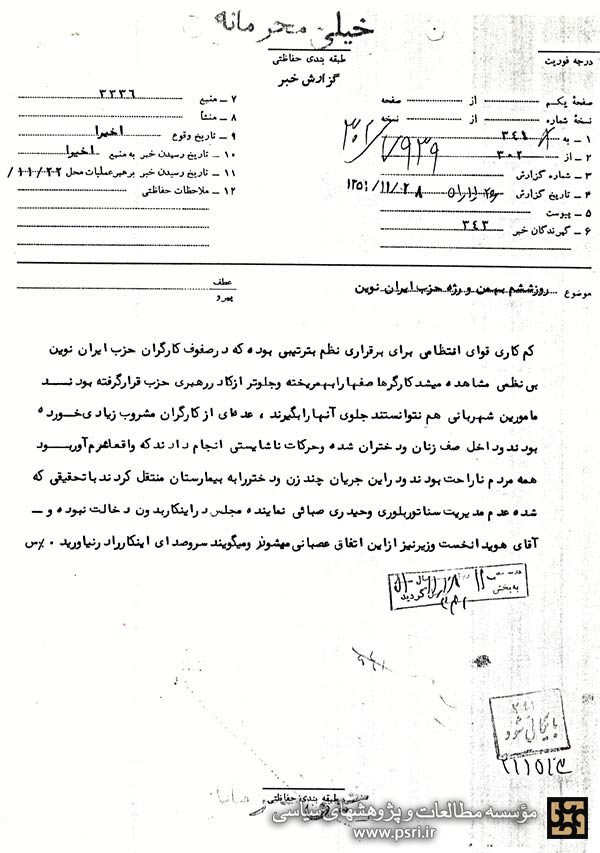 خیلی محرمانه
طبقه بندی حفاظتی
گزارش خبر
درجه فوریت
صفحهٔ یکم از صفحه
نسخهٔ شماره از نسخه
۱ ـ به ۳۴۱
۲ ـ از ۳۰۲
۳ ـ شماره گزارش
۴ ـ تاریخ گزارش ۱۳۵۱/۱۱/۲۸
۵ ـ پیوست
۶ ـ گیرندگان خبر ۳۴۳
۷ ـ منبع ۳۳۳۶
۸ ـ منشأ
۹ ـ تاریخ وقوع اخیرا
۱۰ ـ تاریخ رسیدن خبر به منبع اخیرا
۱۱ ـ تاریخ رسیدن خبر برهبر عملیات محل ۱۱/۰۲۲/
۱۲ ـ ملاحظات حفاظتی
موضوع روزششم بهمن و رژه حزب ایران نوین
عطف
پیرو
کم کاری قوای انتظامی برای برقراری نظم بترتیبی بوده که درصفوف کارگران حزب ایران نوین
بی نظمی مشاهده میشد کارگرها صفها رابهم ریخته وجلوتر ازکادر رهبری حزب قرارگرفته بودند
مامورین شهربانی هم نتوانستند جلوی آنها رابگیرند ، عده‌ای از کارگران مشروب زیادی خورده
بودند و داخل صف زنان ودختران شده وحرکات ناشایستی انجام دادند که واقعا شرم آور بود
همه مردم ناراحت بودند ودراین جریان چند زن ودختررا به بیمارستان منتقل کردند باتحقیقی که
شده عدم مدیریت سناتور بلوری وحیدری صباغی نماینده مجلس دراینکار بدون دخالت نبوده و ـ
آقای هویدا نخست وزیر نیز ازاین اتفاق عصبانی میشوند ومیگویند سروصدای اینکار رادرنیاورید ۰ /س
به بخش ۳۴۱ گردید
۳۴۱
بایگانی شود
طبقه بندی حفاظتی
مؤسسه مطالعات و پژوهشهای سیاسی
www.psri.ir